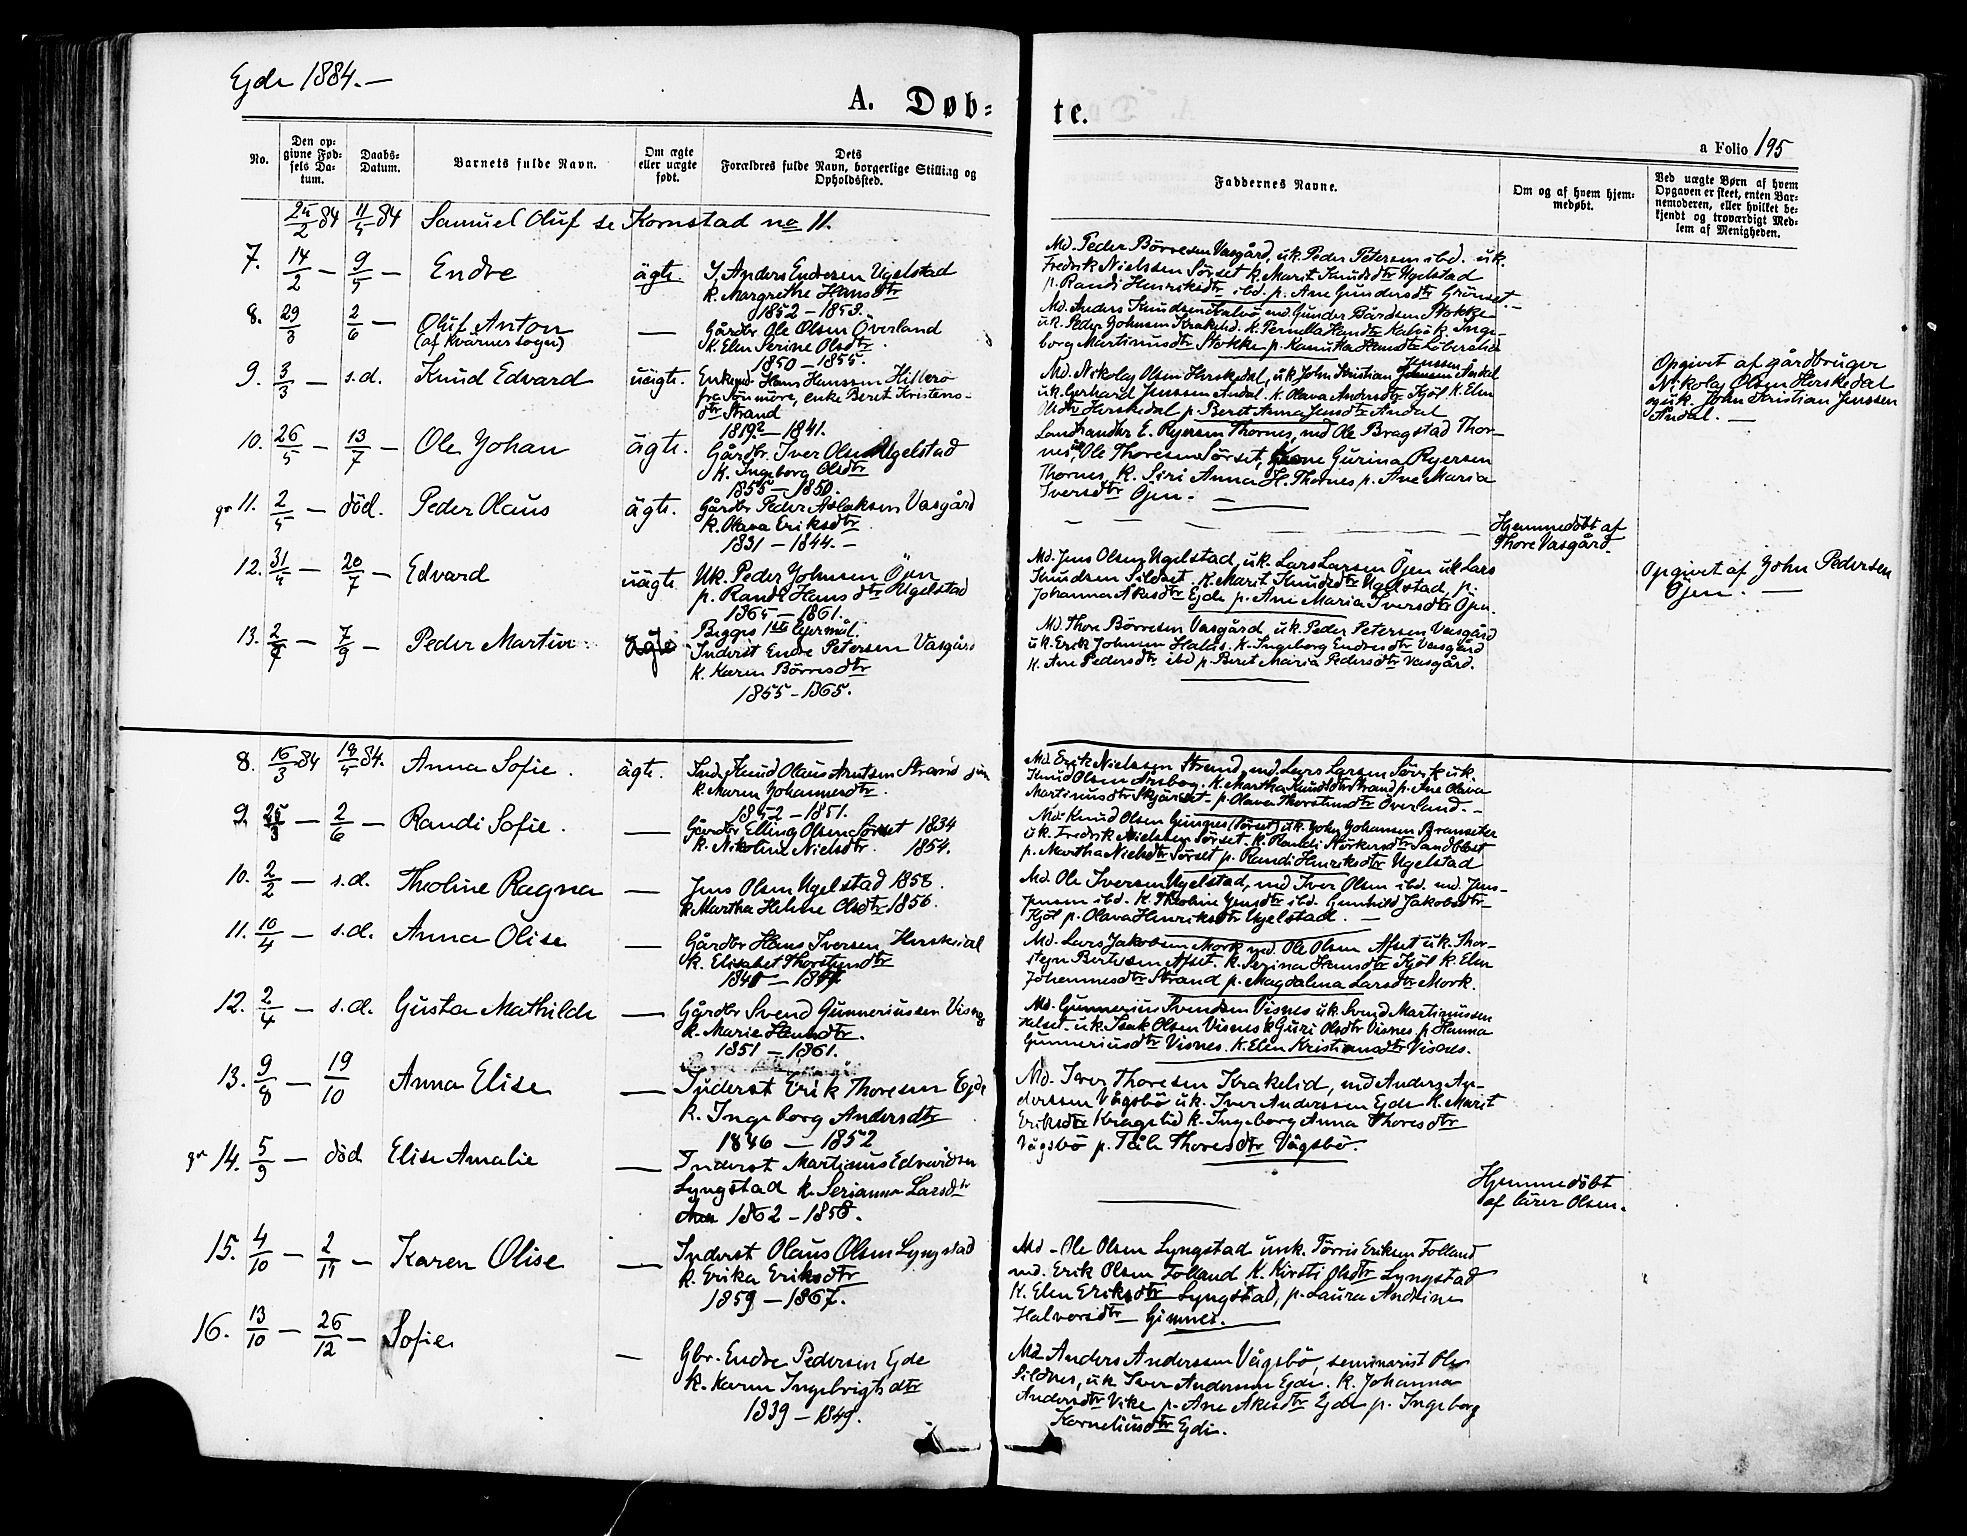 Ejde 1884.—
A. Døb=
te.
a Folio 195
No.
Den op-
givne Fød-
sels Da-
tum.
Daabs-
Datum.
Barnets fulde Navn.
Om ægte
eller uægte
født.
Dets
Forældres fulde Navn, borgerlige Stilling og
Opholdssted.
Faddernes Navne.
Om og af hvem hjem-
medøbt.
Ved uægte Børn af hvem
Opgaven er skeet, enten Bar-
nemoderen, eller hvilket be-
kjendt og troværdigt Med-
lem af Menigheden.
84 84 Samuel Oluf se Kornstad no 11.
7. 14/2 — 9/5 — Endre ägte.
I. Anders Endresen Ugelstad
k. Margrethe Hansdtr
1852 – 1853.
Md. Peder Börresen Vasgård, uk. Peder Petersen ibd. uk.
Fredrik Nielssen Sörset k. Marit Knudsdtr Ugelstad
p. Randi Henriksdtr ibd. p. Ane Gundersdtr
8. 29/3 2/6 — Oluf Anton —
(af Kvarnes sogn)
Gårdbr Ole Olsen Överland
k. Elen Serine Olsdtr
1850 – 1855.
Md. Anders Knudsen md Gunder Bårdsen Stokke
uk. Peder Johnsen Krakelid. k. Pernella Hansdtr k. Inge-
borg Martinusdtr Stokke p.
9. 3/3 — s.d. Knud Edvard uägte.
Enkemd Hans Hanssen Hillerö
fra Sönmöre, enke Beret Kristens-
dtr Strand
1819? – 1841.
Md. Nikolay Olsen Herskedal, uk John Kristian Jenssen Andal
uk. Gerhard Jenssen Andal. k. Olava Andersdtr Kjöl k. Elen
Olsdtr Herskedal p. Beret Anna Jensdtr Andal
Opgivet af gårdbruger
Nikolay Olsen Herskedal
og uk. John Kristian Jenssen
Andal. —
10. 26/5 — 13/7 — Ole Johan ägte.
Gårdbr. Iver Olsen Ugelstad
k. Ingeborg Olsdtr
1855 – 1850.
Landhandler E. Ryersen Thornes, md Ole Bragstad Thor-
nes, uk Ole Thoresen Sörset, Gurina Ryersen
Thornes, k. Siri Anna H. Thornes p. Ane Maria
Iversdtr Öjen. —
gr 11. 2/5 — död. Peder Olaus ägte.
Gårdbr Peder Aslaksen Vasgård
k. Olava Eriksdtr
1831 – 1844. –
Hjemmedöbt af
Thore Vasgård.
12. 31/4 — 20/7 — Edvard uägte
Uk. Peder Johnsen Öjen
p. Randi Hansdtr Ugelstad
1865 – 1861.
Begges 1ste lejermål.
Md. Jens Olsen Ugelstad, uk. Lars Larsen Öjen uk Lars
Knudsen Sildset. k. Marit Knudsdtr Ugelstad, p.
Johanna Akesdtr Ejde p. Ane Maria Iversdtr Öjen.
Opgivet af John Pedersen
Öjen. —
13. — 7/9 — Peder Martin ägte
Inderst Endre Petersen Vasgård
k. Karen Börresdtr
1855 – 1865.
Md. Thore Börresen Vasgård uk. Peder Petersen Vasgård
uk. Erik Johnsen Halås. k. Ingeborg Endresdtr Vasgård
k. Ane Pedersdtr ibd p. Beret Maria Pedersdtr Vasgård.
8. 16/3 84 18/5 84. Anna Sofie. ägte.
Ind. Knud Olaus Arntsen Strand
k. Maren Johannesdtr.
1852 – 1851.
Md. Erik Nielssen Strand, md. Lars Larsen Sövik uk.
Knud Olsen k. Martha Knudsdtr Strand p. Ane Olava
Martinusdtr Skjärset p. Olava Thorstensdtr Överland. —
9. — 2/6 — Randi Sofie. —
Gårdbr Elling Olsen Sörset 1834
k. Nikoline Nielsdtr. 1854.
Md. Knud Olsen Gimnes (Sörset) uk. John Johansen Branseter
uk. Fredrik Nielssen Sörset. k. Randi
p. Martha Nielsdtr Sörset p. Randi Henriksdtr Ugelstad
10. 2/2 — s.d. Theoline Ragna —
Jens Olsen Ugelstad 1858.
k. Martha Helene Olsdtr 1856.
Md. Ole Iversen Ugelstad, md Iver Olsen ibd. md. Jens-
k. Theoline Jensdtr ibd. Gunhild Jakobsdtr
Kjöl p. Olava Henriksdtr Ugelstad. —
11. 10/4 — s.d. Anna Olise —
Gårdbr Hans Iversen Herskedal
k. Elisabet Thorstensdtr
Md. Lars Jakobsen Mork md. Ole Olsen Afset uk. Thor-
stein Bertesen Afset. k. Serina Hansdtr Kjöl k. Elen
Johannesdtr Strand p. Magdalena Larsdtr Mork.
12. 2/4 — s.d. Gusta Mathilde —
Gårdbr Svend Gunneriussen Visnes
k. Marie Hansdtr.
1851 – 1861.
Md. Gunnerius Svendsen Visnes uk. Svend Martinussen
uk. Isak Olsen Visnes k Guri Olsdtr Visnes p Hanna
Gunneriusdtr Visnes. k. Elen Kristiansdtr Visnes.
13. 9/8 — 19/10 Anna Elise —
Inderst Erik Thoresen Ejde
k. Ingeborg Andersdtr
1846 — 1852
Md. Iver Thoresen Krakelid, md Anders An-
derssen Vågsbö uk. Iver Anderssen Ejde k. Marit
Eriksdtr k. Ingeborg Anna Thoresdtr
Vågsbö p. Thoresdtr Vågsbö.
gr 14. 5/9 — död Elise Amalie —
Inderst Martinus Edvardsen
Lyngstad k. Serianna Larsdtr
1862 – 1858.
Hjemmedöbt
af lärer Olsen.
15. 4/10 — 2/11 — Karen Olise —
Inderst Olaus Olsen Lyngstad
k. Erika Eriksdtr
1859 – 1867.
Md. Ole Olsen Lyngstad unk. Törris Eriksen Folland
md. Erik Olsen Folland k. Kirsti Olsdtr Lyngstad
k. Elen Eriksdtr Lyngstad, p. Laura Andrine
Halvorsdtr Gimnes.
16. 13/10 — 26/12 — Sofie —
Gbr. Endre Pedersen Ejde
k. Karen Ingebrigtsdtr
1839 – 1849.
Md Anders Anderssen Vågsbö, seminarist Ole
Sildnes, uk Iver Anderssen Ejde. k. Johanna
Andersdtr Vike p. Ane Akesdtr Ejde p. Ingeborg
Korneliusdtr Ejde.